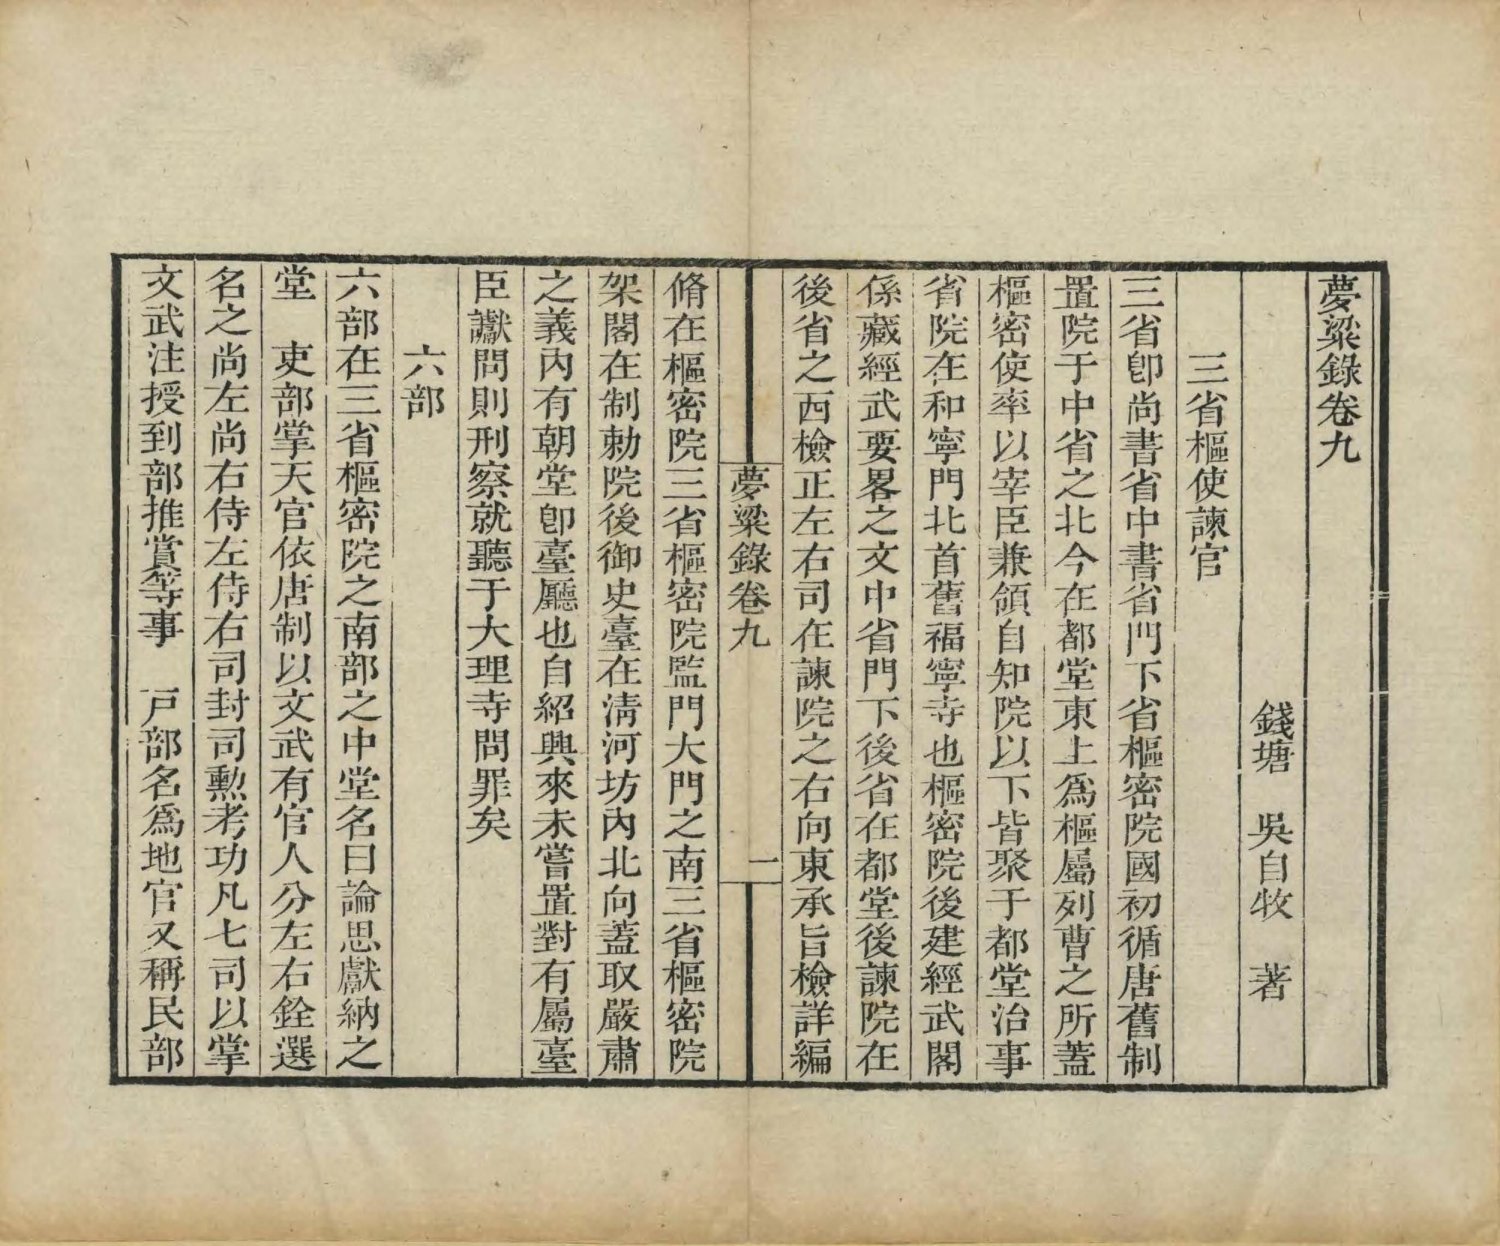 夢粱錄卷九
錢塘　吳自牧　著
三省樞使諫官
三省卽尚書省中書省門下省樞密院國初循唐舊制
置院于中省之北今在都堂東上爲樞屬列曹之所蓋
樞密使率以宰臣兼領自知院以下皆聚于都堂治事
省院在和寧門北首舊福寧寺也樞密院後建經武閣
係藏經武要畧之文中省門下後省在都堂後諫院在
後省之西檢正左右司在諫院之右向東承旨檢詳編
夢粱錄卷九　一
脩在樞密院三省樞密院監門大門之南三省樞密院
架閣在制勑院後御史臺在淸河坊內北向蓋取嚴肅
之義內有朝堂卽臺廳也自紹興來未嘗置對有屬臺
臣讞問則刑察就聽于大理寺問罪矣
六部
六部在三省樞密院之南部之中堂名曰論思獻納之
堂　吏部掌天官依唐制以文武有官人分左右銓選
名之尚左尚右侍左侍右司封司勲考功凡七司以掌
文武注授到部推賞等事　戸部名爲地官又稱民部